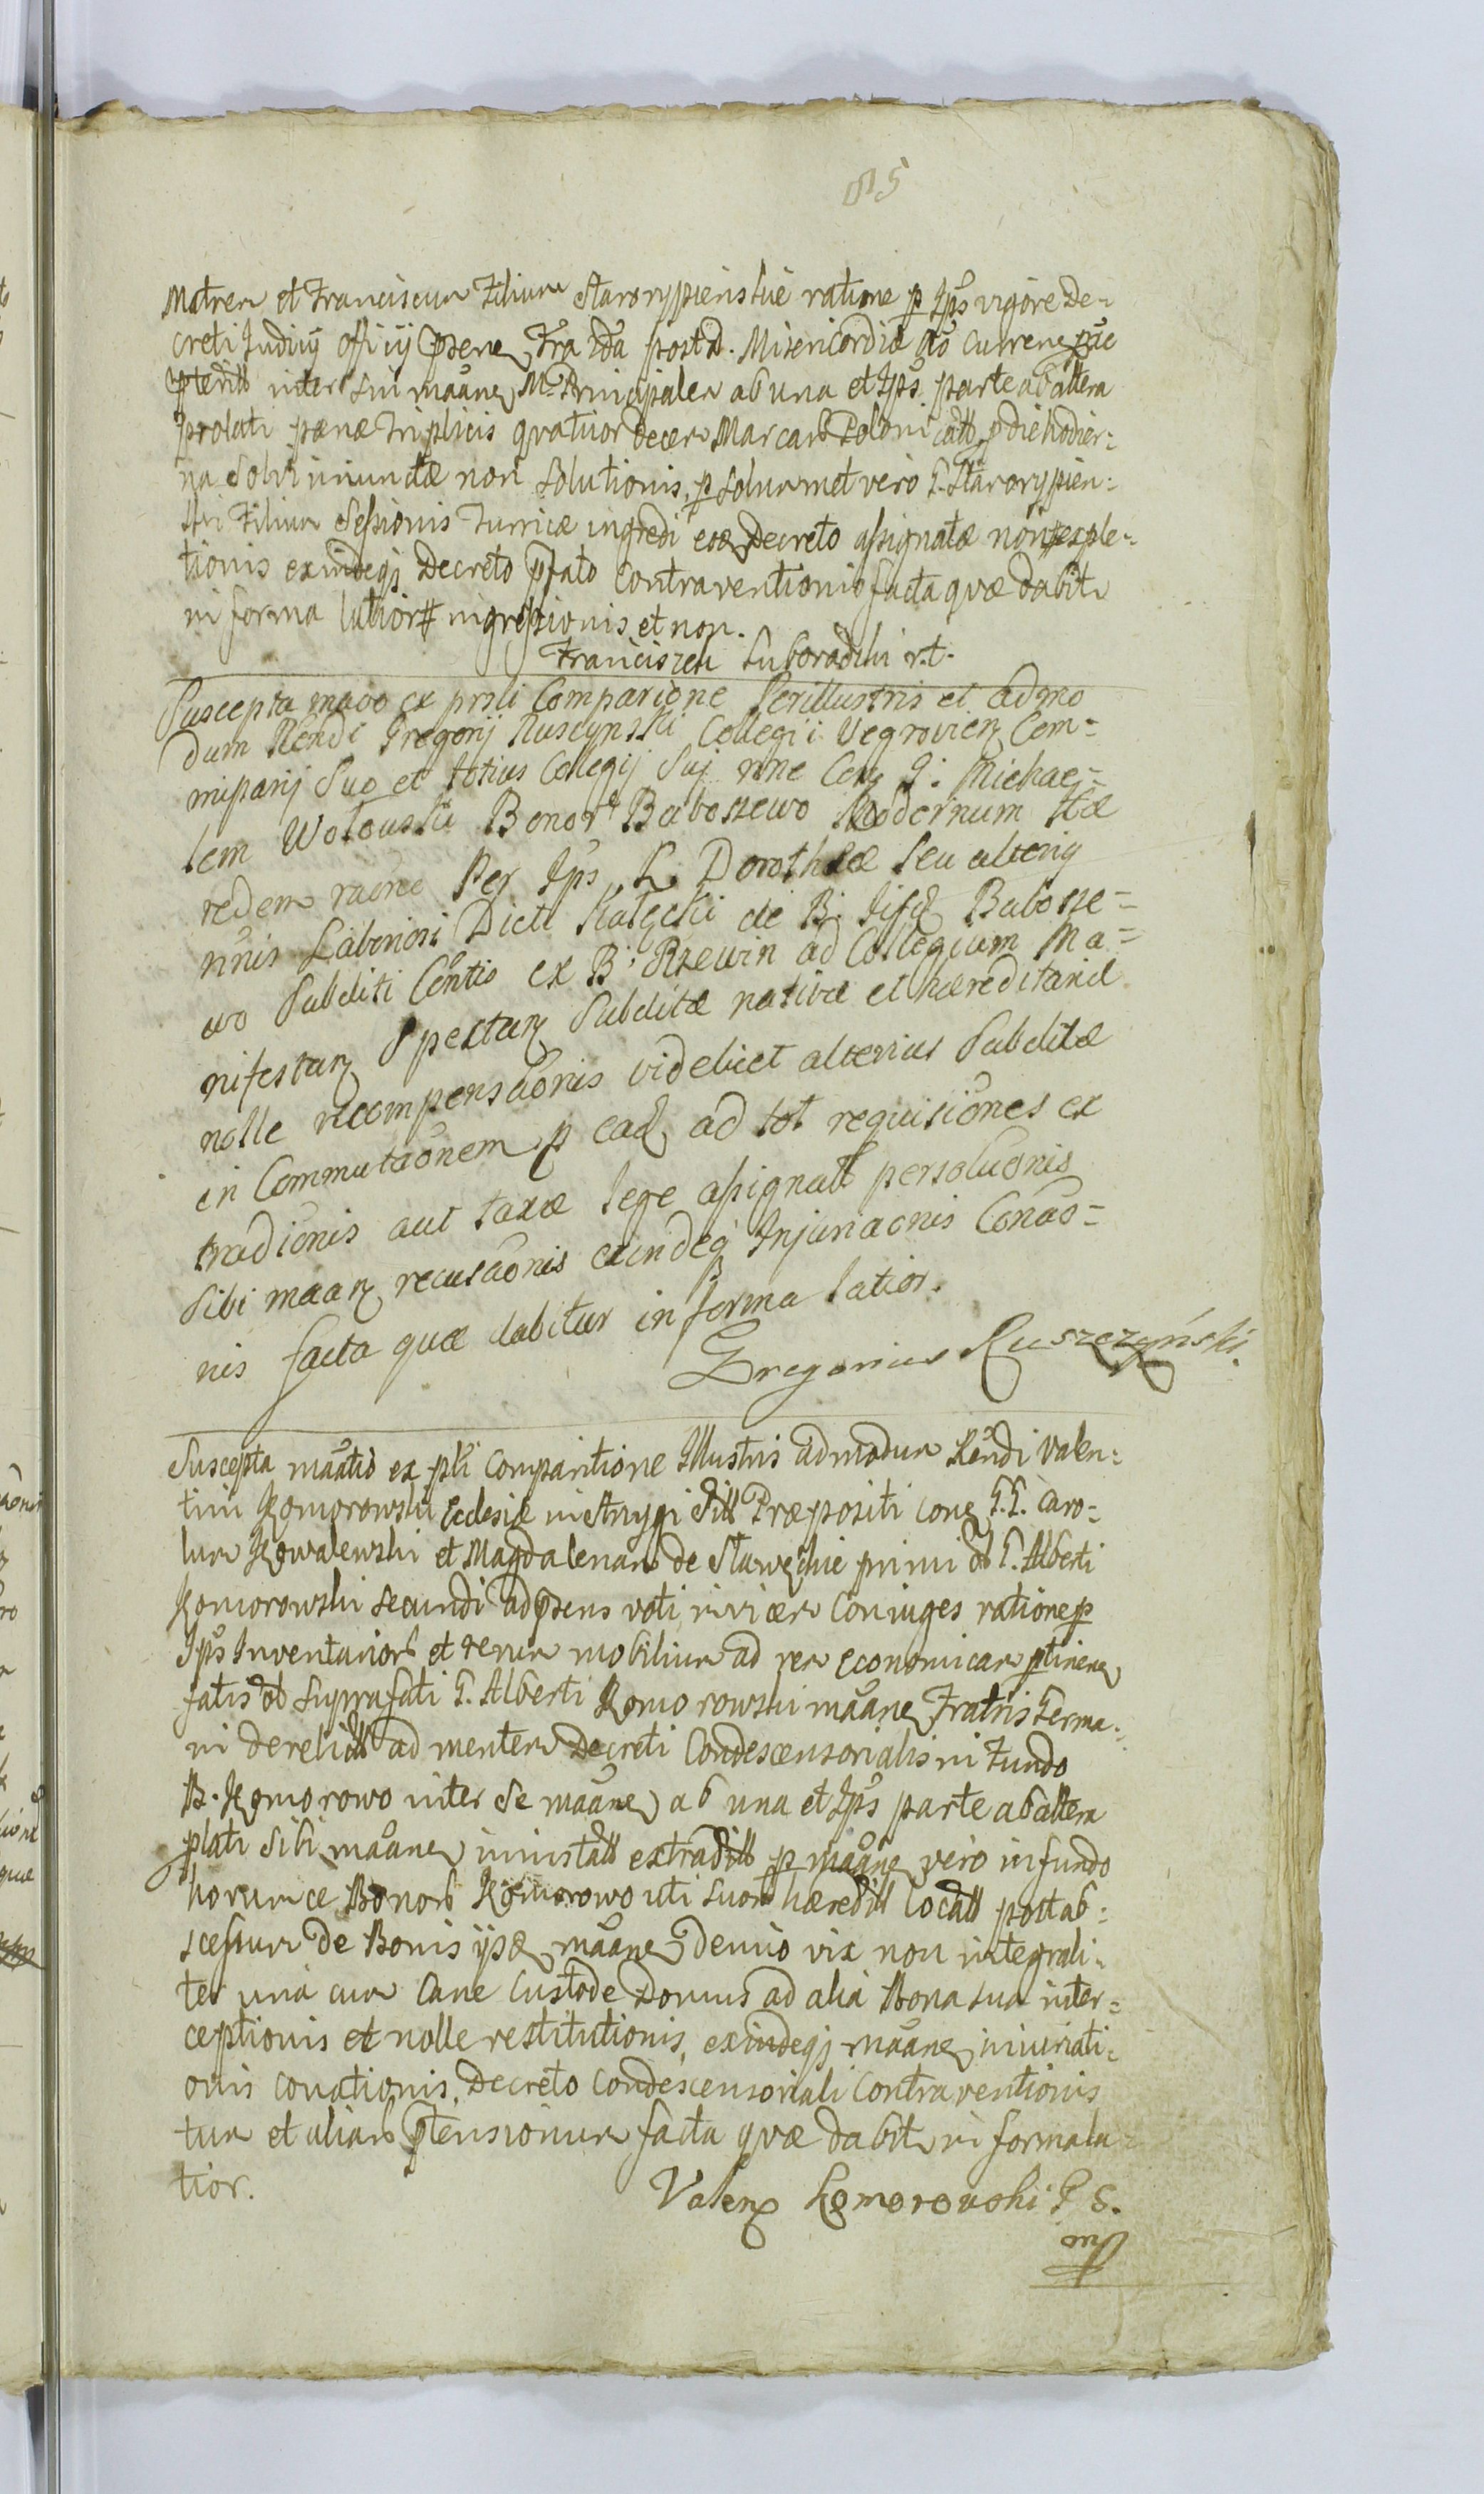 85
Matrem et Franciscum Filium Starorypienskie ratione p Ips vigore De-
creti Judicij officij Psentis Fra 2da post d. Misericordiæ Ao currene
pterit inter sui maane Mm Principalem ab una et Ips parte ab altera
prolati pænæ triplicis qvatuordecem Marcarb Polonicatt p die hodier-
na solvi iniunctæ non solutionis, p solummet vero G. Starorypien-
ski Filium Sessionis Turricæ ingredi Decreto assignatæ non exple-
tionis exindeqj Decreto pfato contraventionis facta qvæ dabitr
in forma latiori ingressionis et non.
Franciszek Suboradzki r.t.
Suscepta mao ex prsli Comparione Perillustris et admo
dum Rendi Gregorij Ruscynski Collegii Vegrovien Com-
missarij Suo et totius Collegij Suj nne Con G: Michae-
lem Wołowski Bonor Baboszewo Modernum Hæ
redem raone Per Ips L. Dorotheæ seu alterig
nnis Laboriosi Dicti Kałęcki de B. Babosze-
wo Subditi Contis ex B. Rzewin ad Collegium Ma-
nifestan Spectan Subditæ nativæ et hæreditariæ
nolle recompensaonis videlicet alterius Subditæ
in Commutaonem p ead ad tot requisiones ex
tradionis aut taxæ lege assignatt persoluonis
sibi maan recusaonis exindeq Injuriaonis Conao-
nis facta quæ dabitur in forma latior.
Gregorius Ruszczyński.
Suscepta maatio ex psti Comparitione Illustris admodum Rendi Valen-
tini Komorowski Ecclesiæ in Strzygi Sitt Præpositi cone G.G. Caro-
lum Kowalewski et Magdalenam de Sławęckie primi ob G. Alberti
Komorowski secundi ad psens voti invicem Coniuges ratione p
Ips Inventariorb et rerum mobilium ad rem Economicam ptinene
fatis ob suprafati G. Alberti Komorowski maane Fratris Germa-
ni derelictt ad mentem Decreti Condescensorialis in Fundo
B. Komorowo inter se maane ab una et Ips parte ab altera
plati sibi maane inirstatt extraditt p maane vero in fundo
horumce Bonorb Komorowo uti suorb hæreditt locatt post ab-
scessum de Bonis ijsd maane denuo vix non integrali-
ter una cum Cane Custode Domus ad alia Bona sua inter-
ceptionis et nolle restitutionis, exindeqj maane iniuriati-
onis conationis, Decreto Condescensoriali contraventionis
tum et aliarb Ptensionum facta qvæ dabitr in forma la-
tior.
Valen Komorowski P S.
mp